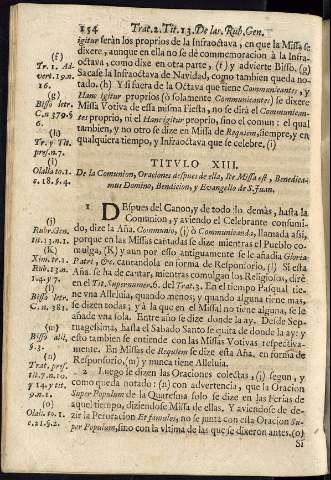 154 Trat. 2. Tit. 13. De las Rub. Gen.
igitur seràn los proprios de la Infraoctava, en que la Missa se
dixere, aunque en ella no se dè commemoracion à la Infra-
octava, como dixe en otra parte, (f) y advierte Bisso. (g)
Sacase la Infraoctava de Navidad, como tambien queda no-
tado. (h) Y si fuera de la Octava que tiene Communicantes, y
Hanc igitur proprios (ò solamente Communicantes) se dixere
Missa Votiva de essa misma Fiesta, no se dirà el Communican-
tes proprio, ni el Hanc igitur proprio, sino el comun: el qual
tambien, y no otro se dize en Missa de Requiem, siempre, y en
qualquiera tiempo, y Infraoctava que se celebre. (i)
TITVLO XIII.
De la Comunion, Oraciones despues de ella, Ite Missa est, Benedica-
mus Domino, Bendicion, y Evangelio de S. Juan.
1 DEspues del Canon, y de todo lo demàs, hasta la
Comunion, y aviendo el Celebrante consumi-
do, dize la Aña. Communio, (j) ò Communicanda, llamada assi,
porque en las Missas cantadas se dize mientras el Pueblo co-
mulga, (K) y aun por esso antiguamente se le añadia Gloria
Patri, &c. cantandola en forma de Responsorio, (l) Si esta
Aña. se ha de cantar, mientras comulgan los Religiosos, dirè
en el Tit. Supernumer. 6. del Trat. 3. En el tiempo Pasqual tie-
ne vna Alleluia, quando menos; y quando alguna tiene mas,
se dizen todas; y à la que en el Missal no tiene alguna, se le
añade vna sola. Entre año se dize donde la ay. Desde Sep-
tuagesima, hasta el Sabado Santo se quita de donde la ay: y
esto tambien se entiende con las Missas Votivas respectiva-
mente. En Missas de Requiem se dize esta Aña. en forma de
Responsorio, (m) y nunca tiene Alleluia.
2 Luego se dizen las Oraciones colectas, (j) segun, y
como queda notado: (n) con advertencia, que la Oracion
Super Populum de la Quaresma solo se dize en las Ferias de
aquel tiempo, diziendose Missa de ellas. Y aviendose de de-
zir la Peroracion Et famulos, no se junta con esta Oracion Su-
per Populum, sino con la vltima de las que se dixeron antes. (o)
Si
(f)
Tr. 1. Ad-
vert. 19. n.
16.
(g)
Bisso litr.
C. n. 379. §
6.
(h)
Tr. y Tit.
pres. n. 7.
(i)
Olalla to. 1.
n. 18. §. 4.
(j)
Rubr. Gen.
tit. 13. n. 1.
(K)
Xim. tr. 1.
Rubr. 13. n.
1. 4. y 7.
(l)
Bisso letr.
C. n. 381.
(m)
§. 3.
(n)
Trat. pres.
tit. 7. n. 10.
y 14. y tit.
9. n. 1.
(o)
Olall. to. 1.
n. 21. §. 2.